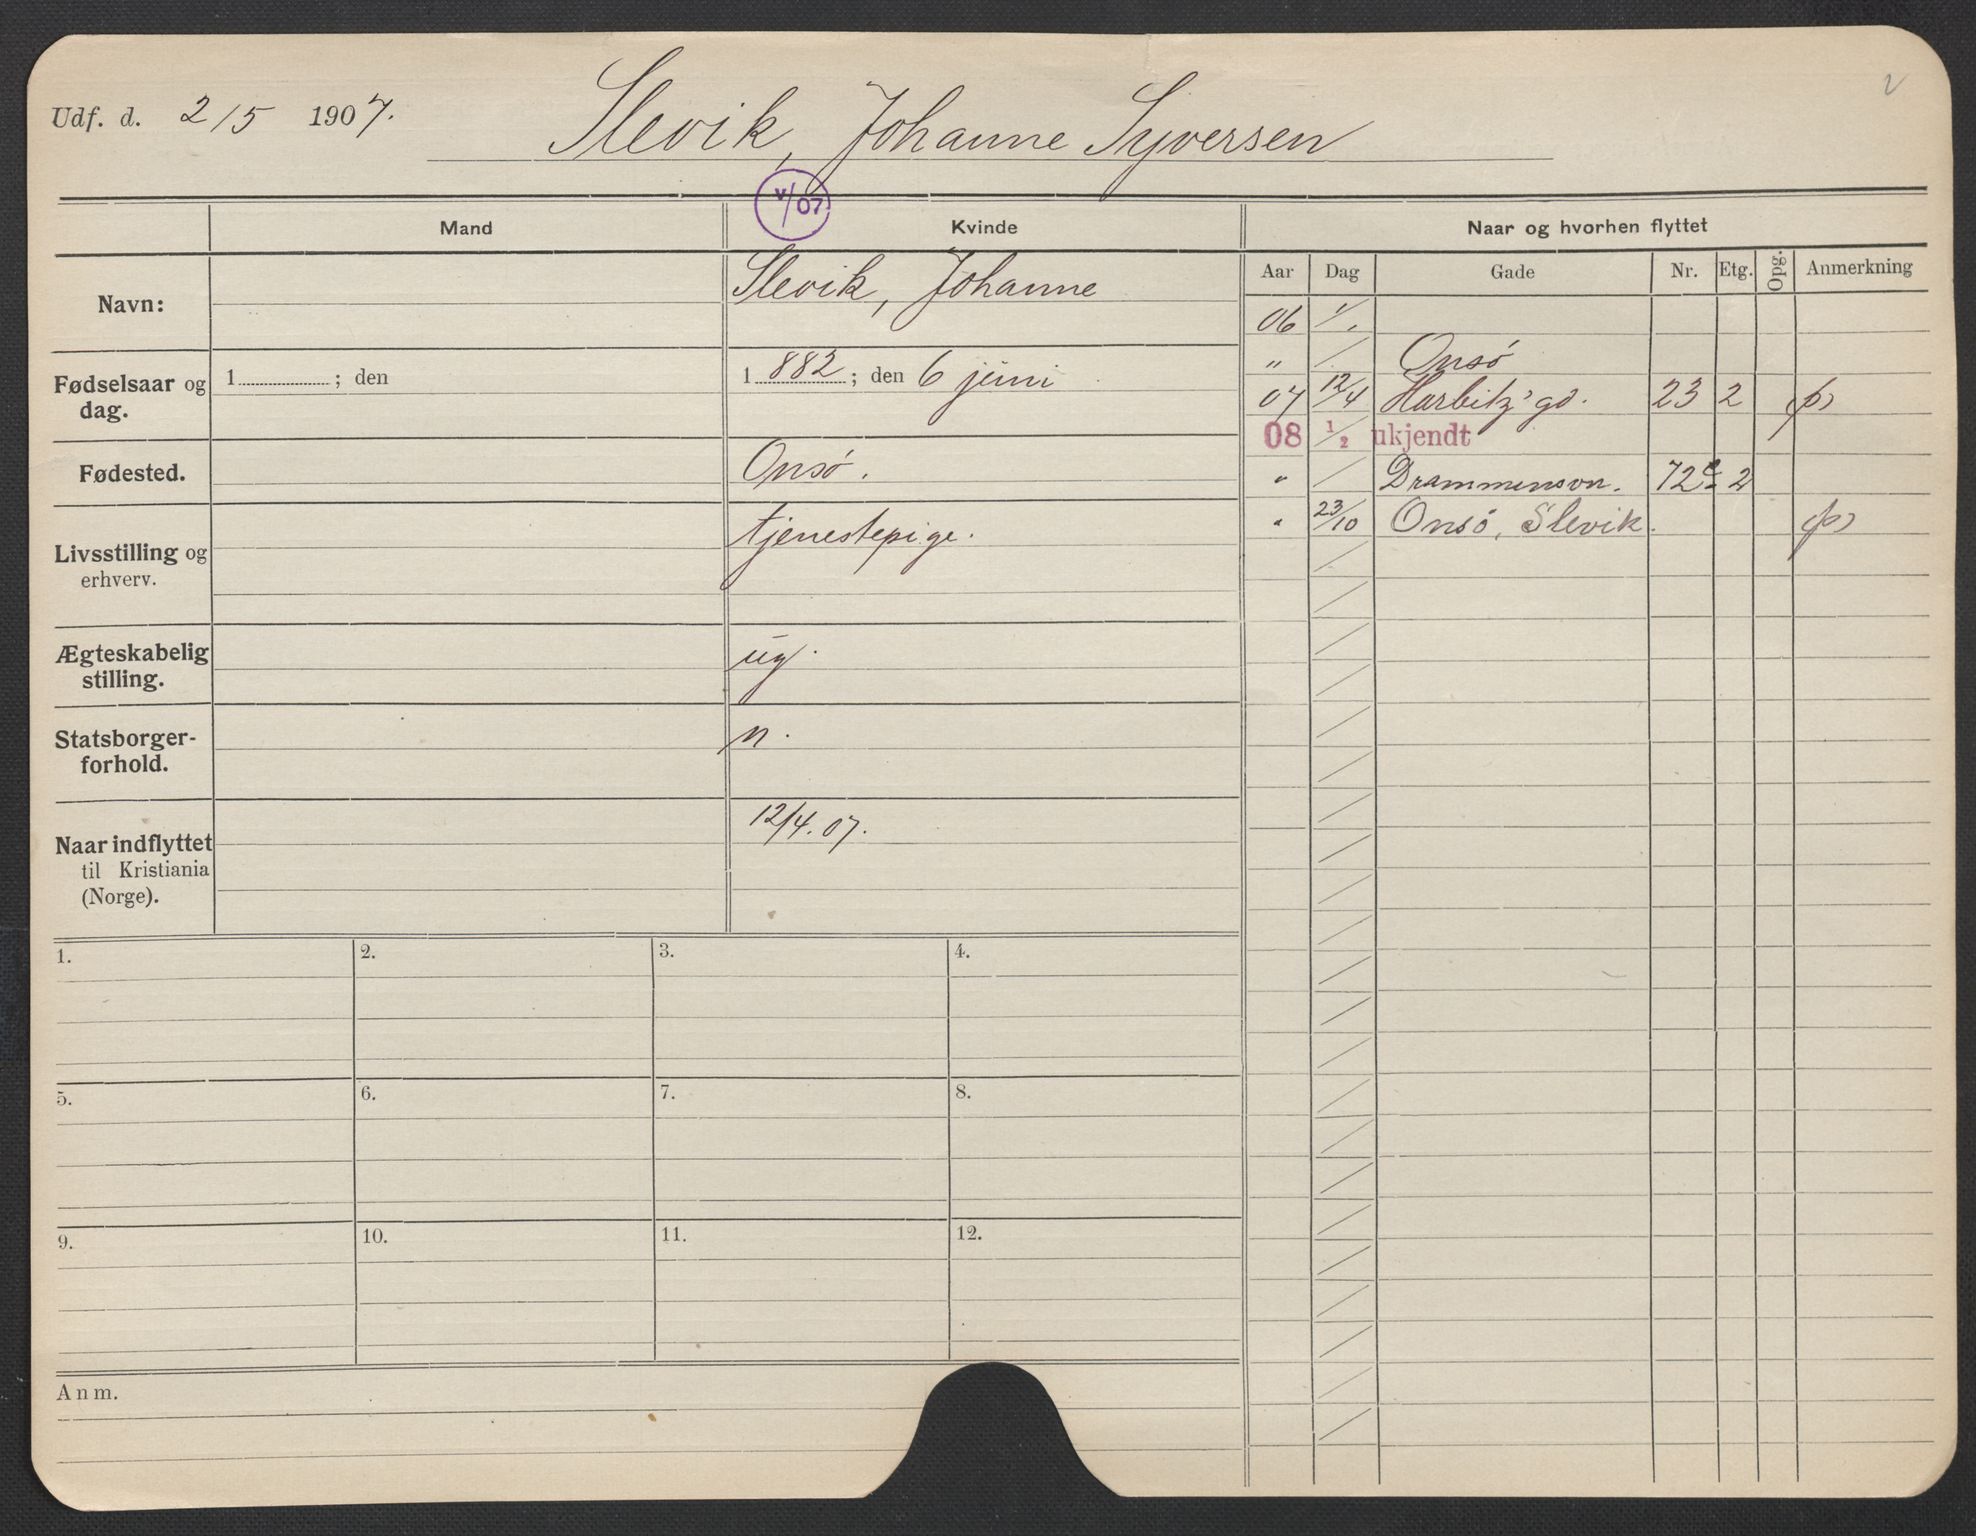 Udf. d. 2/5 1907. Slevik, Johanne Syversen
v/07
Mand Kvinde Naar og hvorhen flyttet
Aar Dag Gade Nr. Etg. Opg. Anmerkning
Navn: Slevik, Johanne
Fødselsaar og dag. 1 ; den 1882 ; den 6 juni
Fødested. Onsø.
Livsstilling og erhverv. tjenestepige.
Ægteskabelig stilling. ug.
Statsborgerforhold. n.
Naar indflyttet til Kristiania (Norge). 12/4. 07.
06 1/
" / Onsø
07 12/4 Harbitz' gd. 23 2 (p)
08 1/2 ukjendt
" / Drammensvn. 72c 2
" 23/10 Onsø, Slevik. (p)
1. 2. 3. 4.
5. 6. 7. 8.
9. 10. 11. 12.
Anm.